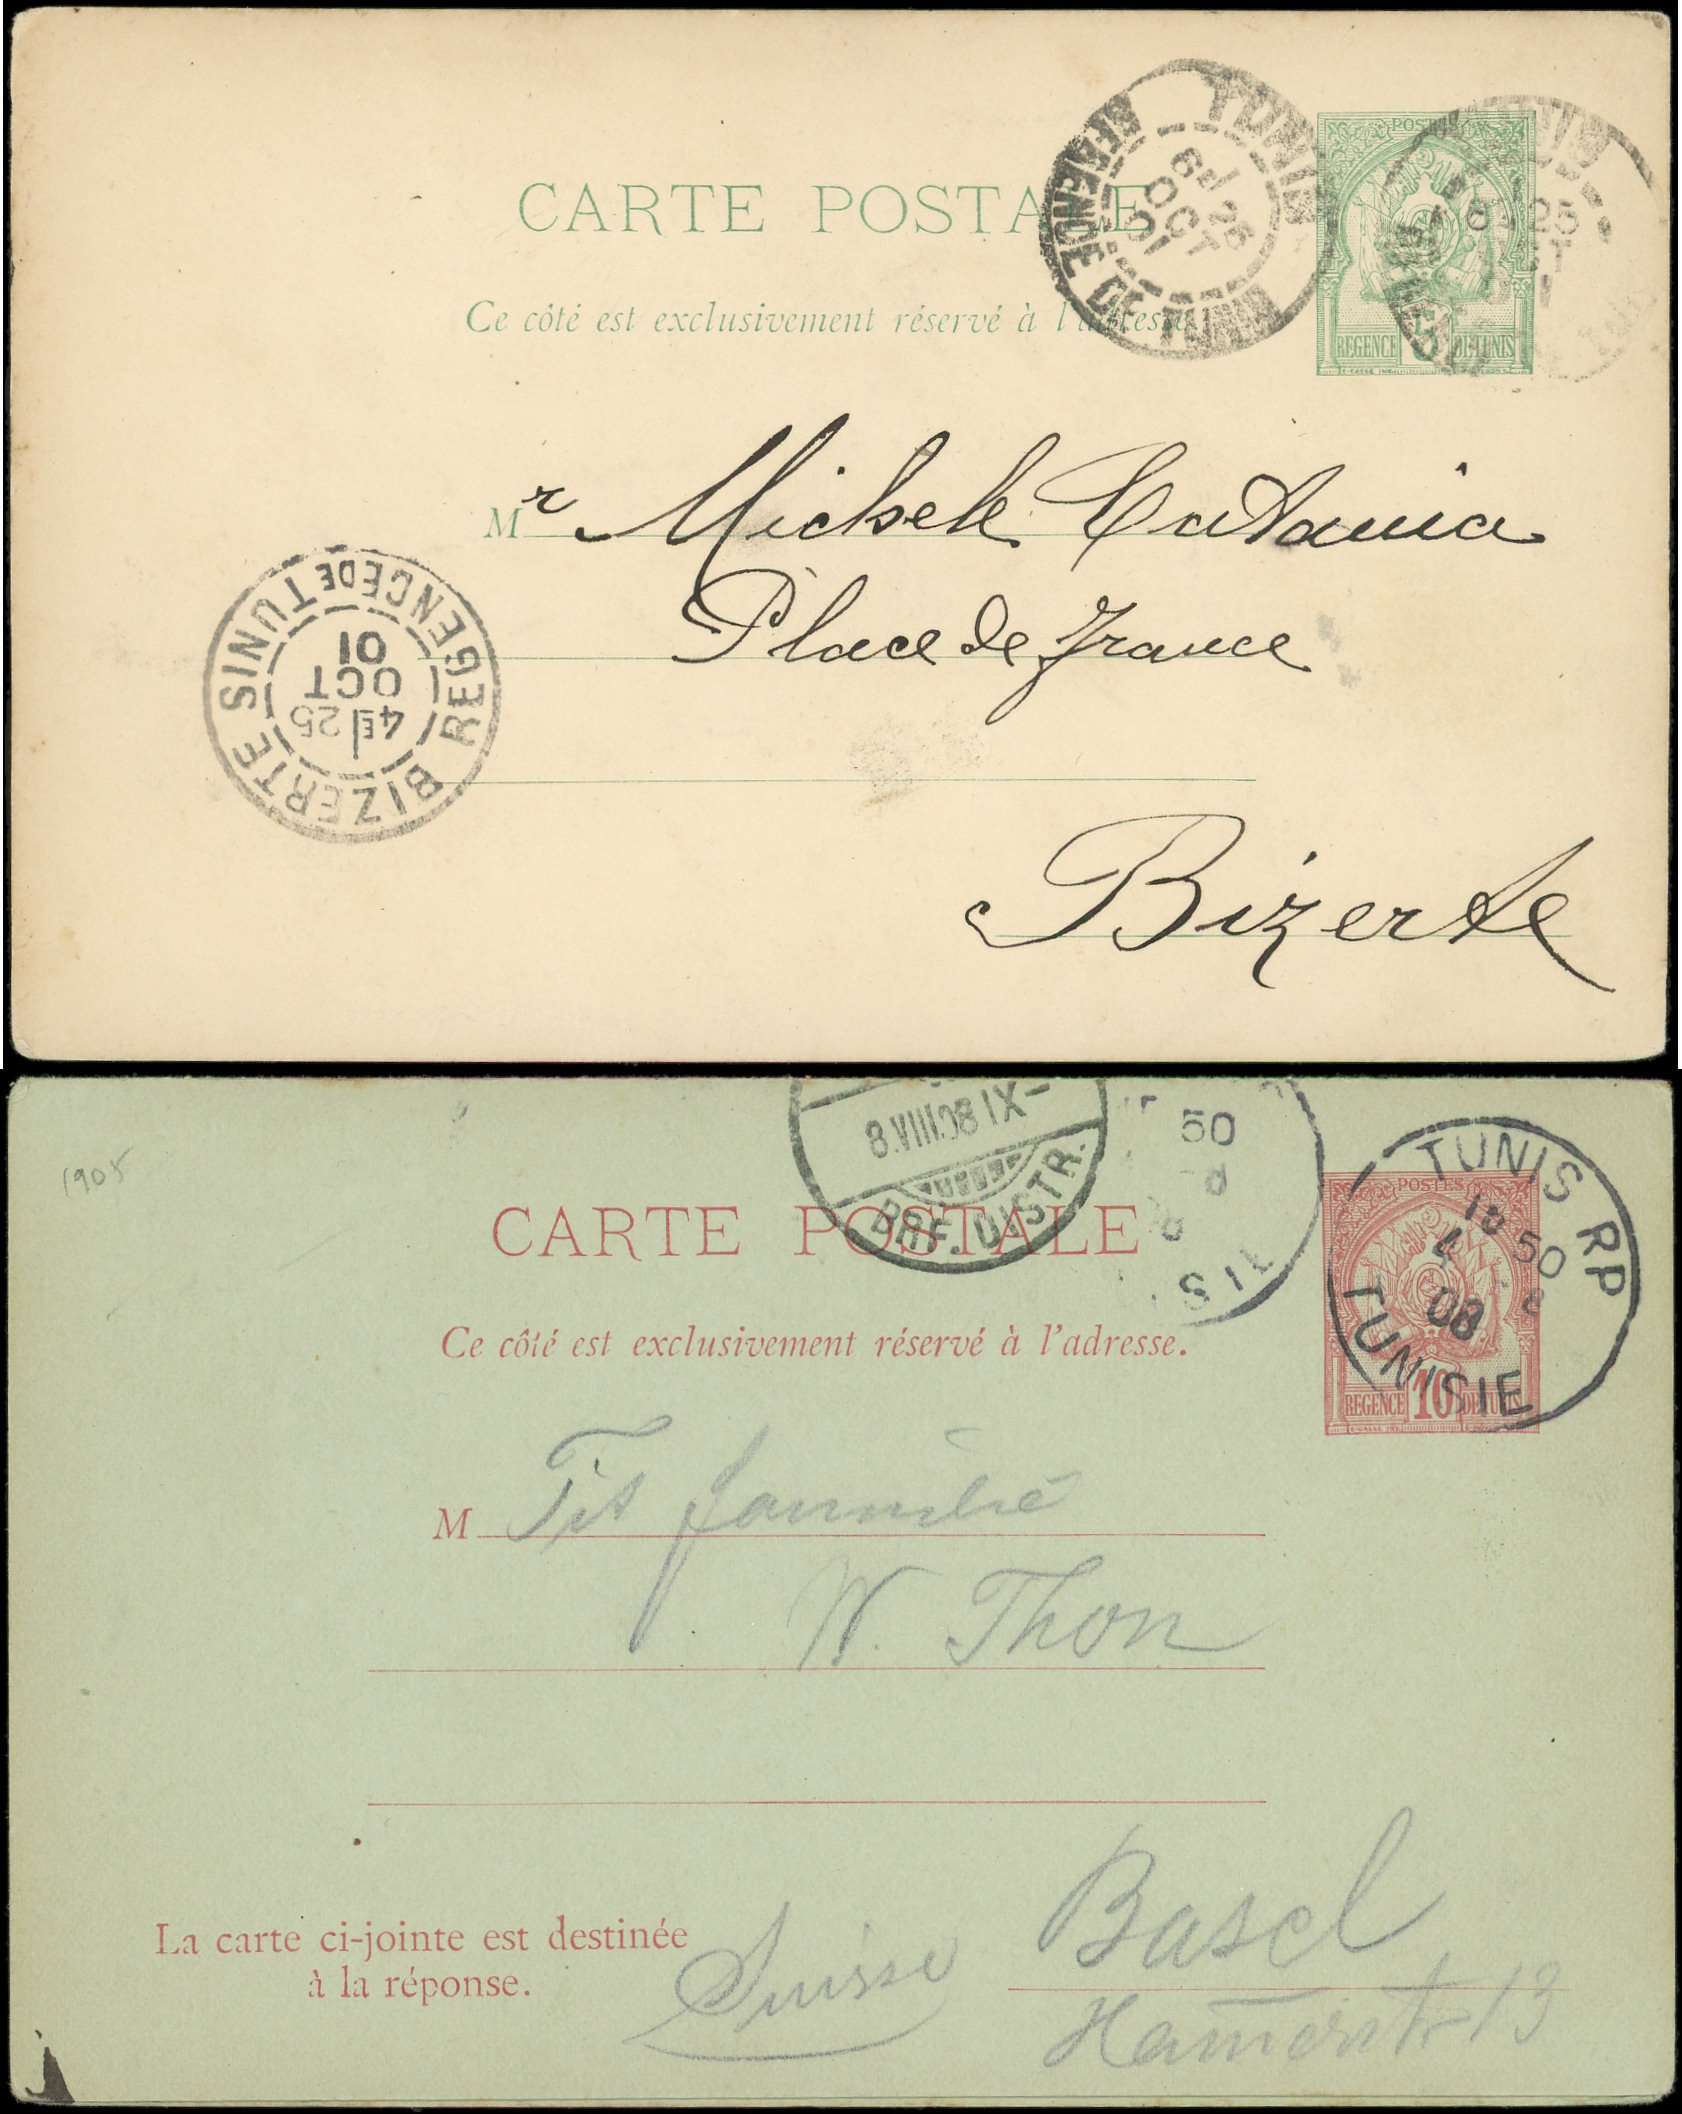 TUNIS
REGENCE DE TUNIS
25
OCT
01
POSTES
5
REGENCE DE TUNIS
CARTE POSTALE
Ce côté est exclusivement réservé à l'adresse.
Mr Michele Catania
Place de France
Bizerte
BIZERTE TUNIS
REGENCE DE TUNIS
4E 25
OCT
01
8.VIII.08 IX-
BRF. DISTR.
50
TUNIS RP
18 50
4 - 8
08
TUNISIE
POSTES
10
REGENCE DE TUNIS
1905
CARTE POSTALE
Ce côté est exclusivement réservé à l'adresse.
M Tit
W. Thon
Basel
La carte ci-jointe est destinée
à la réponse.
Suisse
13